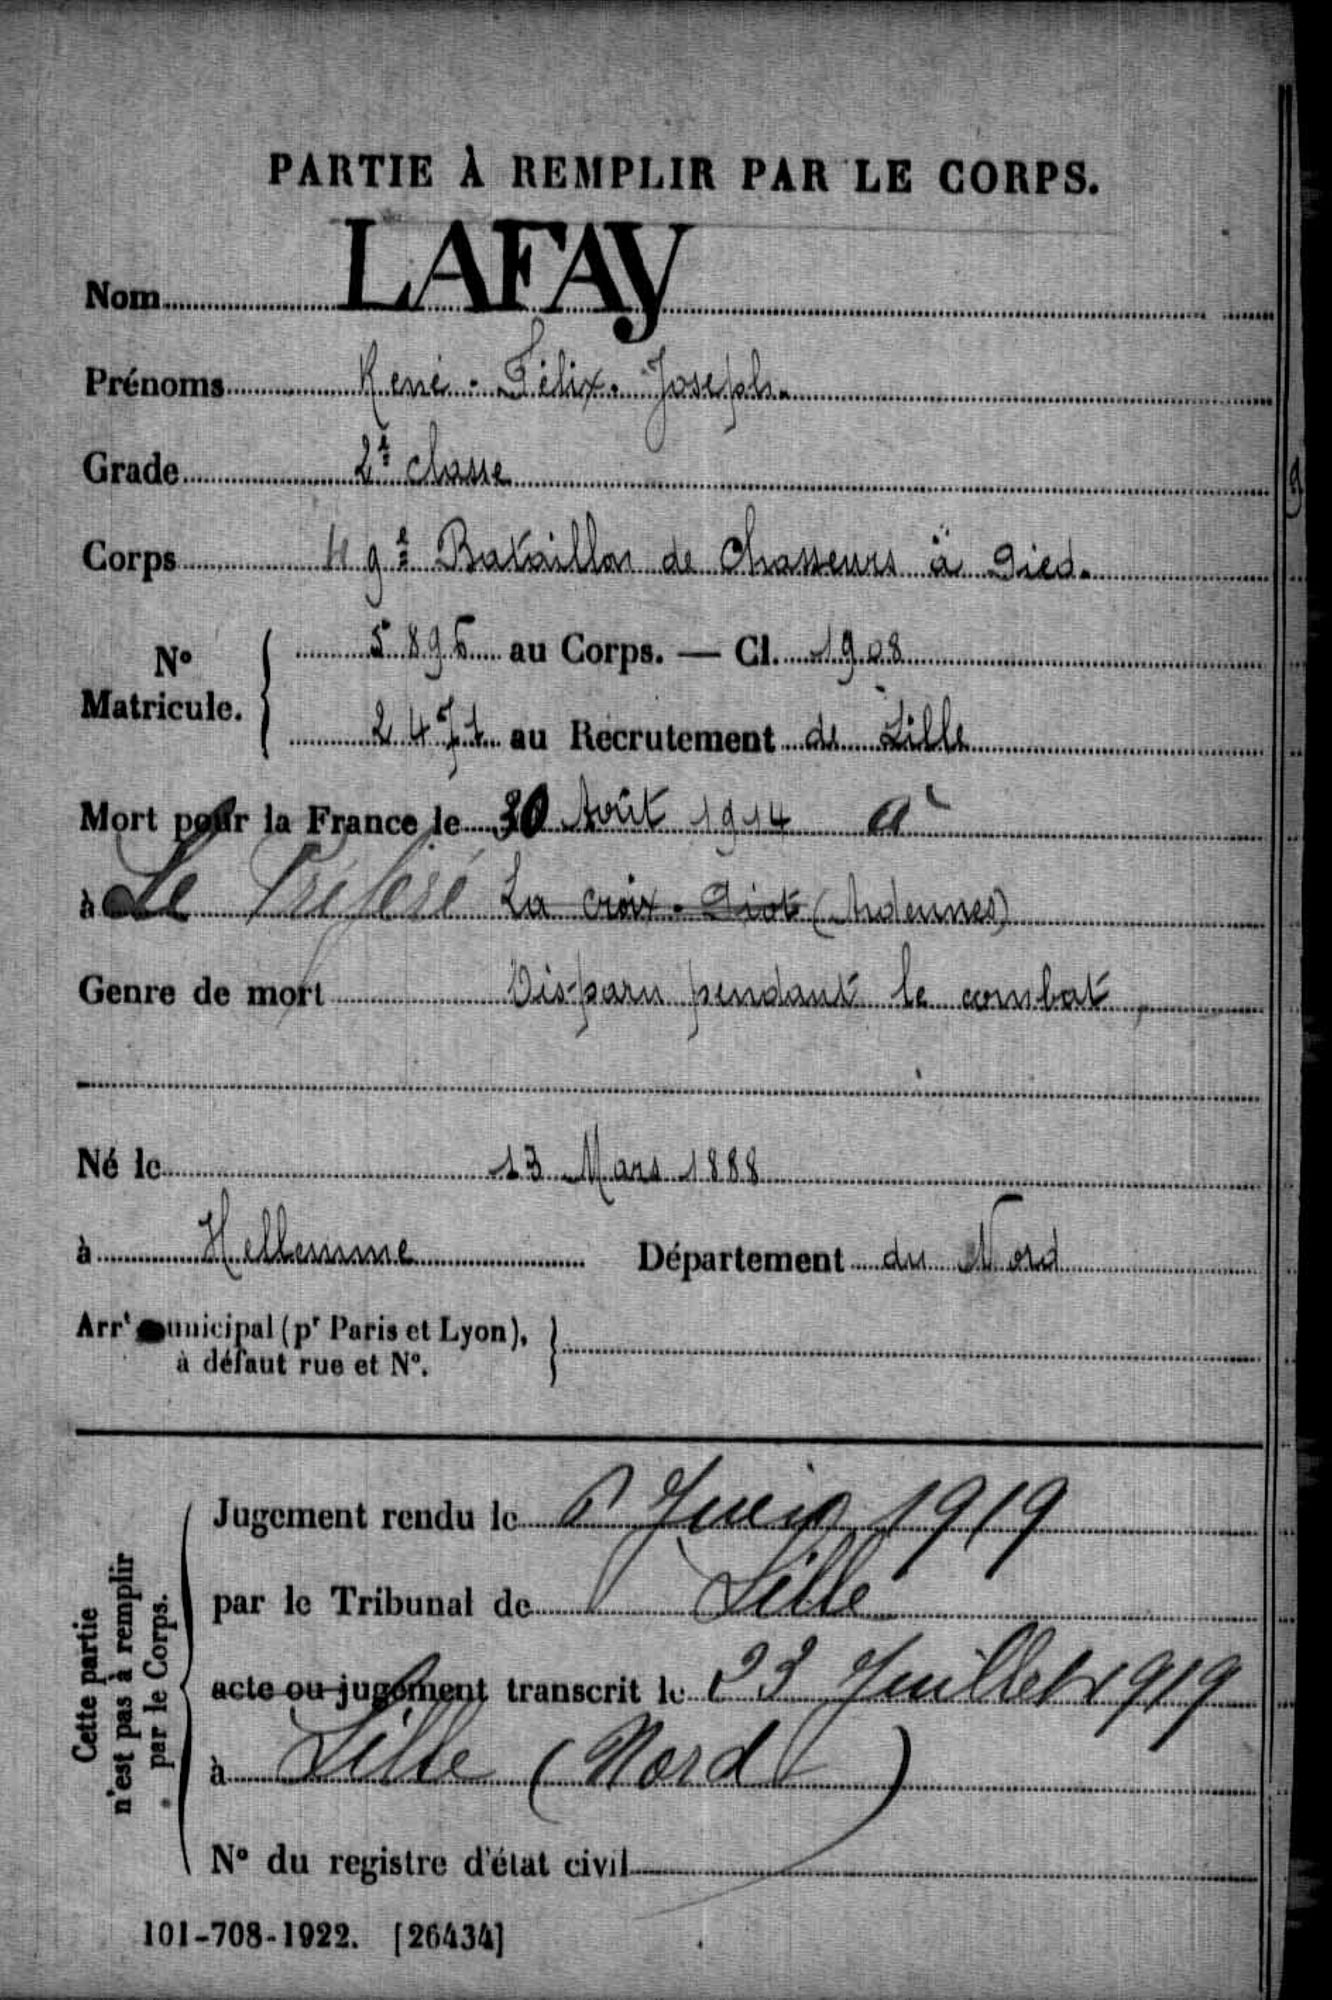 PARTIE À REMPLIR PAR LE CORPS.
Nom LAFAY
Prénoms René - Félix - Joseph.
Grade 2e classe
Corps 49e Bataillon de Chasseurs à Pied.
No Matricule. { 5896 au Corps. — Cl. 1908
2471 au Recrutement de Lille
Mort pour la France le 30 Août 1914 à
à Le Préféré La croix-Piot (Ardennes)
Genre de mort Disparu pendant le combat
Né le 13 Mars 1888
à Hellemme Département du Nord
Arrt municipal (pr Paris et Lyon),
à défaut rue et No.
Cette partie
n'est pas à remplir
par le Corps.
Jugement rendu le Juin 1919
par le Tribunal de Lille
acte ou jugement transcrit le 23 Juillet 1919
à Lille (Nord)
No du registre d'état civil
101-708-1922. [26434]